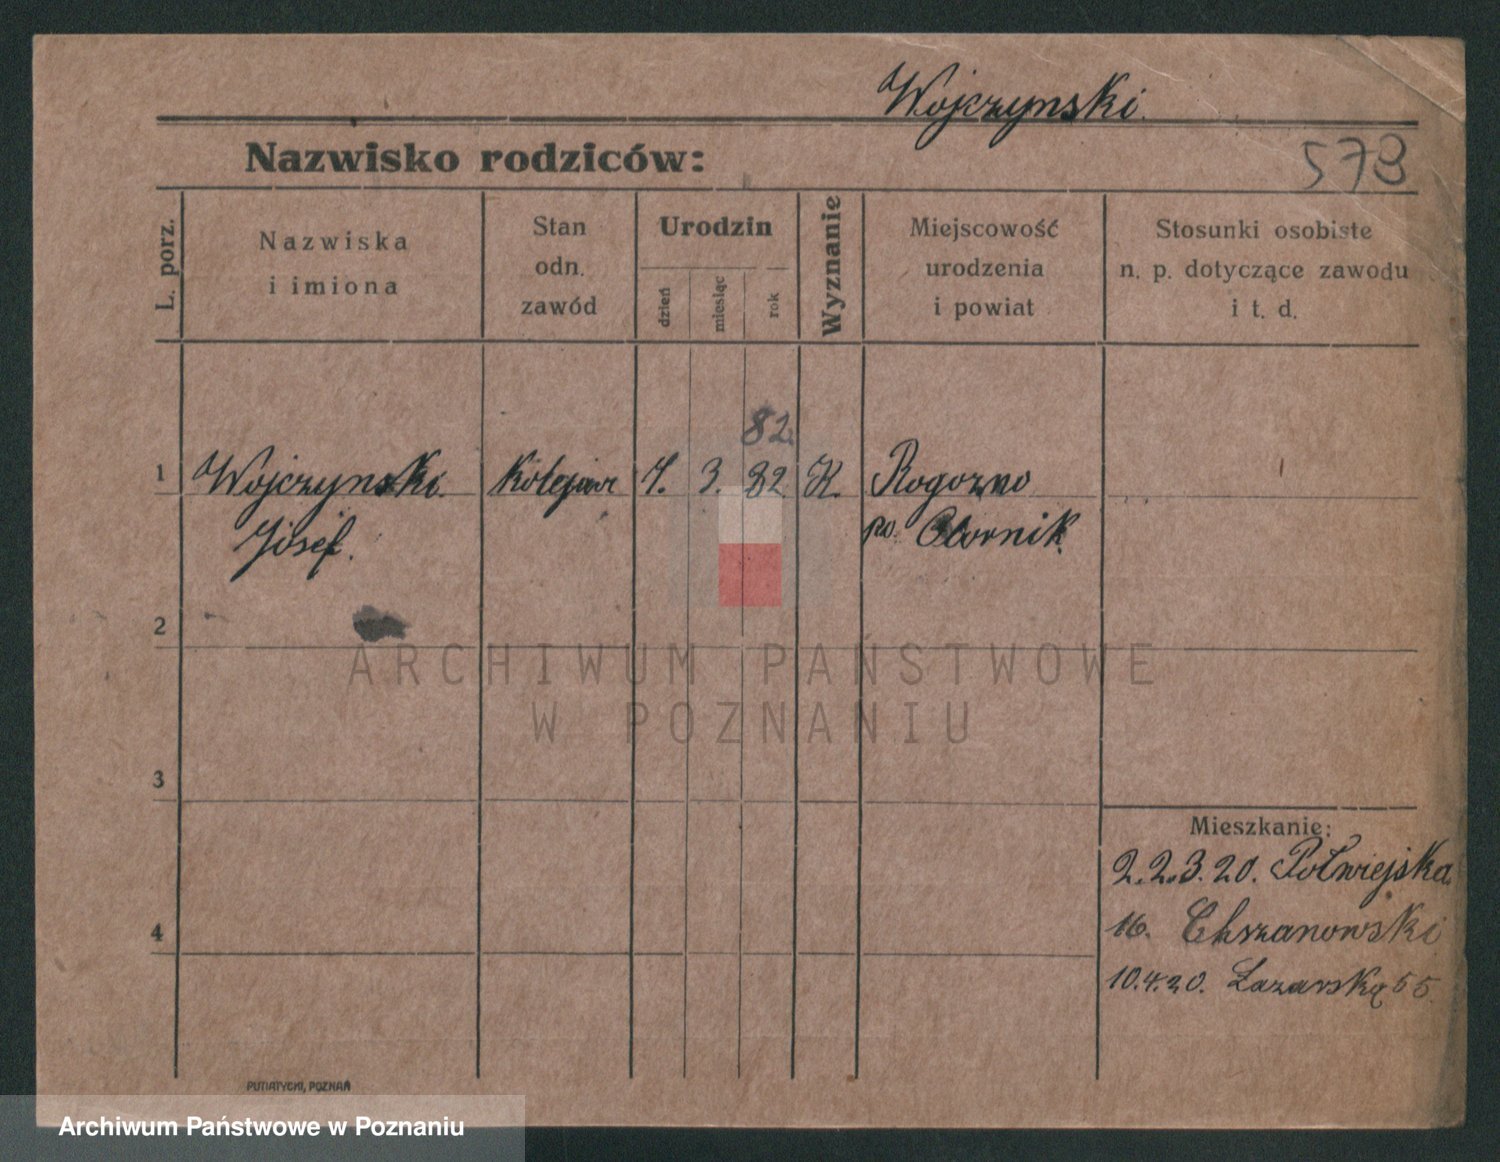 Wojczynski.
Nazwisko rodziców:
578
L. porz.
Nazwiska
i imiona
Stan
odn.
zawód
Urodzin
dzień
miesiąc
rok
Wyznanie
Miejscowość
urodzenia
i powiat
Stosunki osobiste
n. p. dotyczące zawodu
i t. d.
82.
1 Wojczynski. Kolejarz 7. 3. 82 K. Rogozno
Josef. pow. Obornik.
2
ARCHIWUM PAŃSTWOWE
W POZNANIU
3
Mieszkanie:
2.2.3.20. Połwiejska.
4
16. Chrzanowski
10.4.20. Lazarska 55.
PUTIATYCKI, POZNAŃ
Archiwum Państwowe w Poznaniu